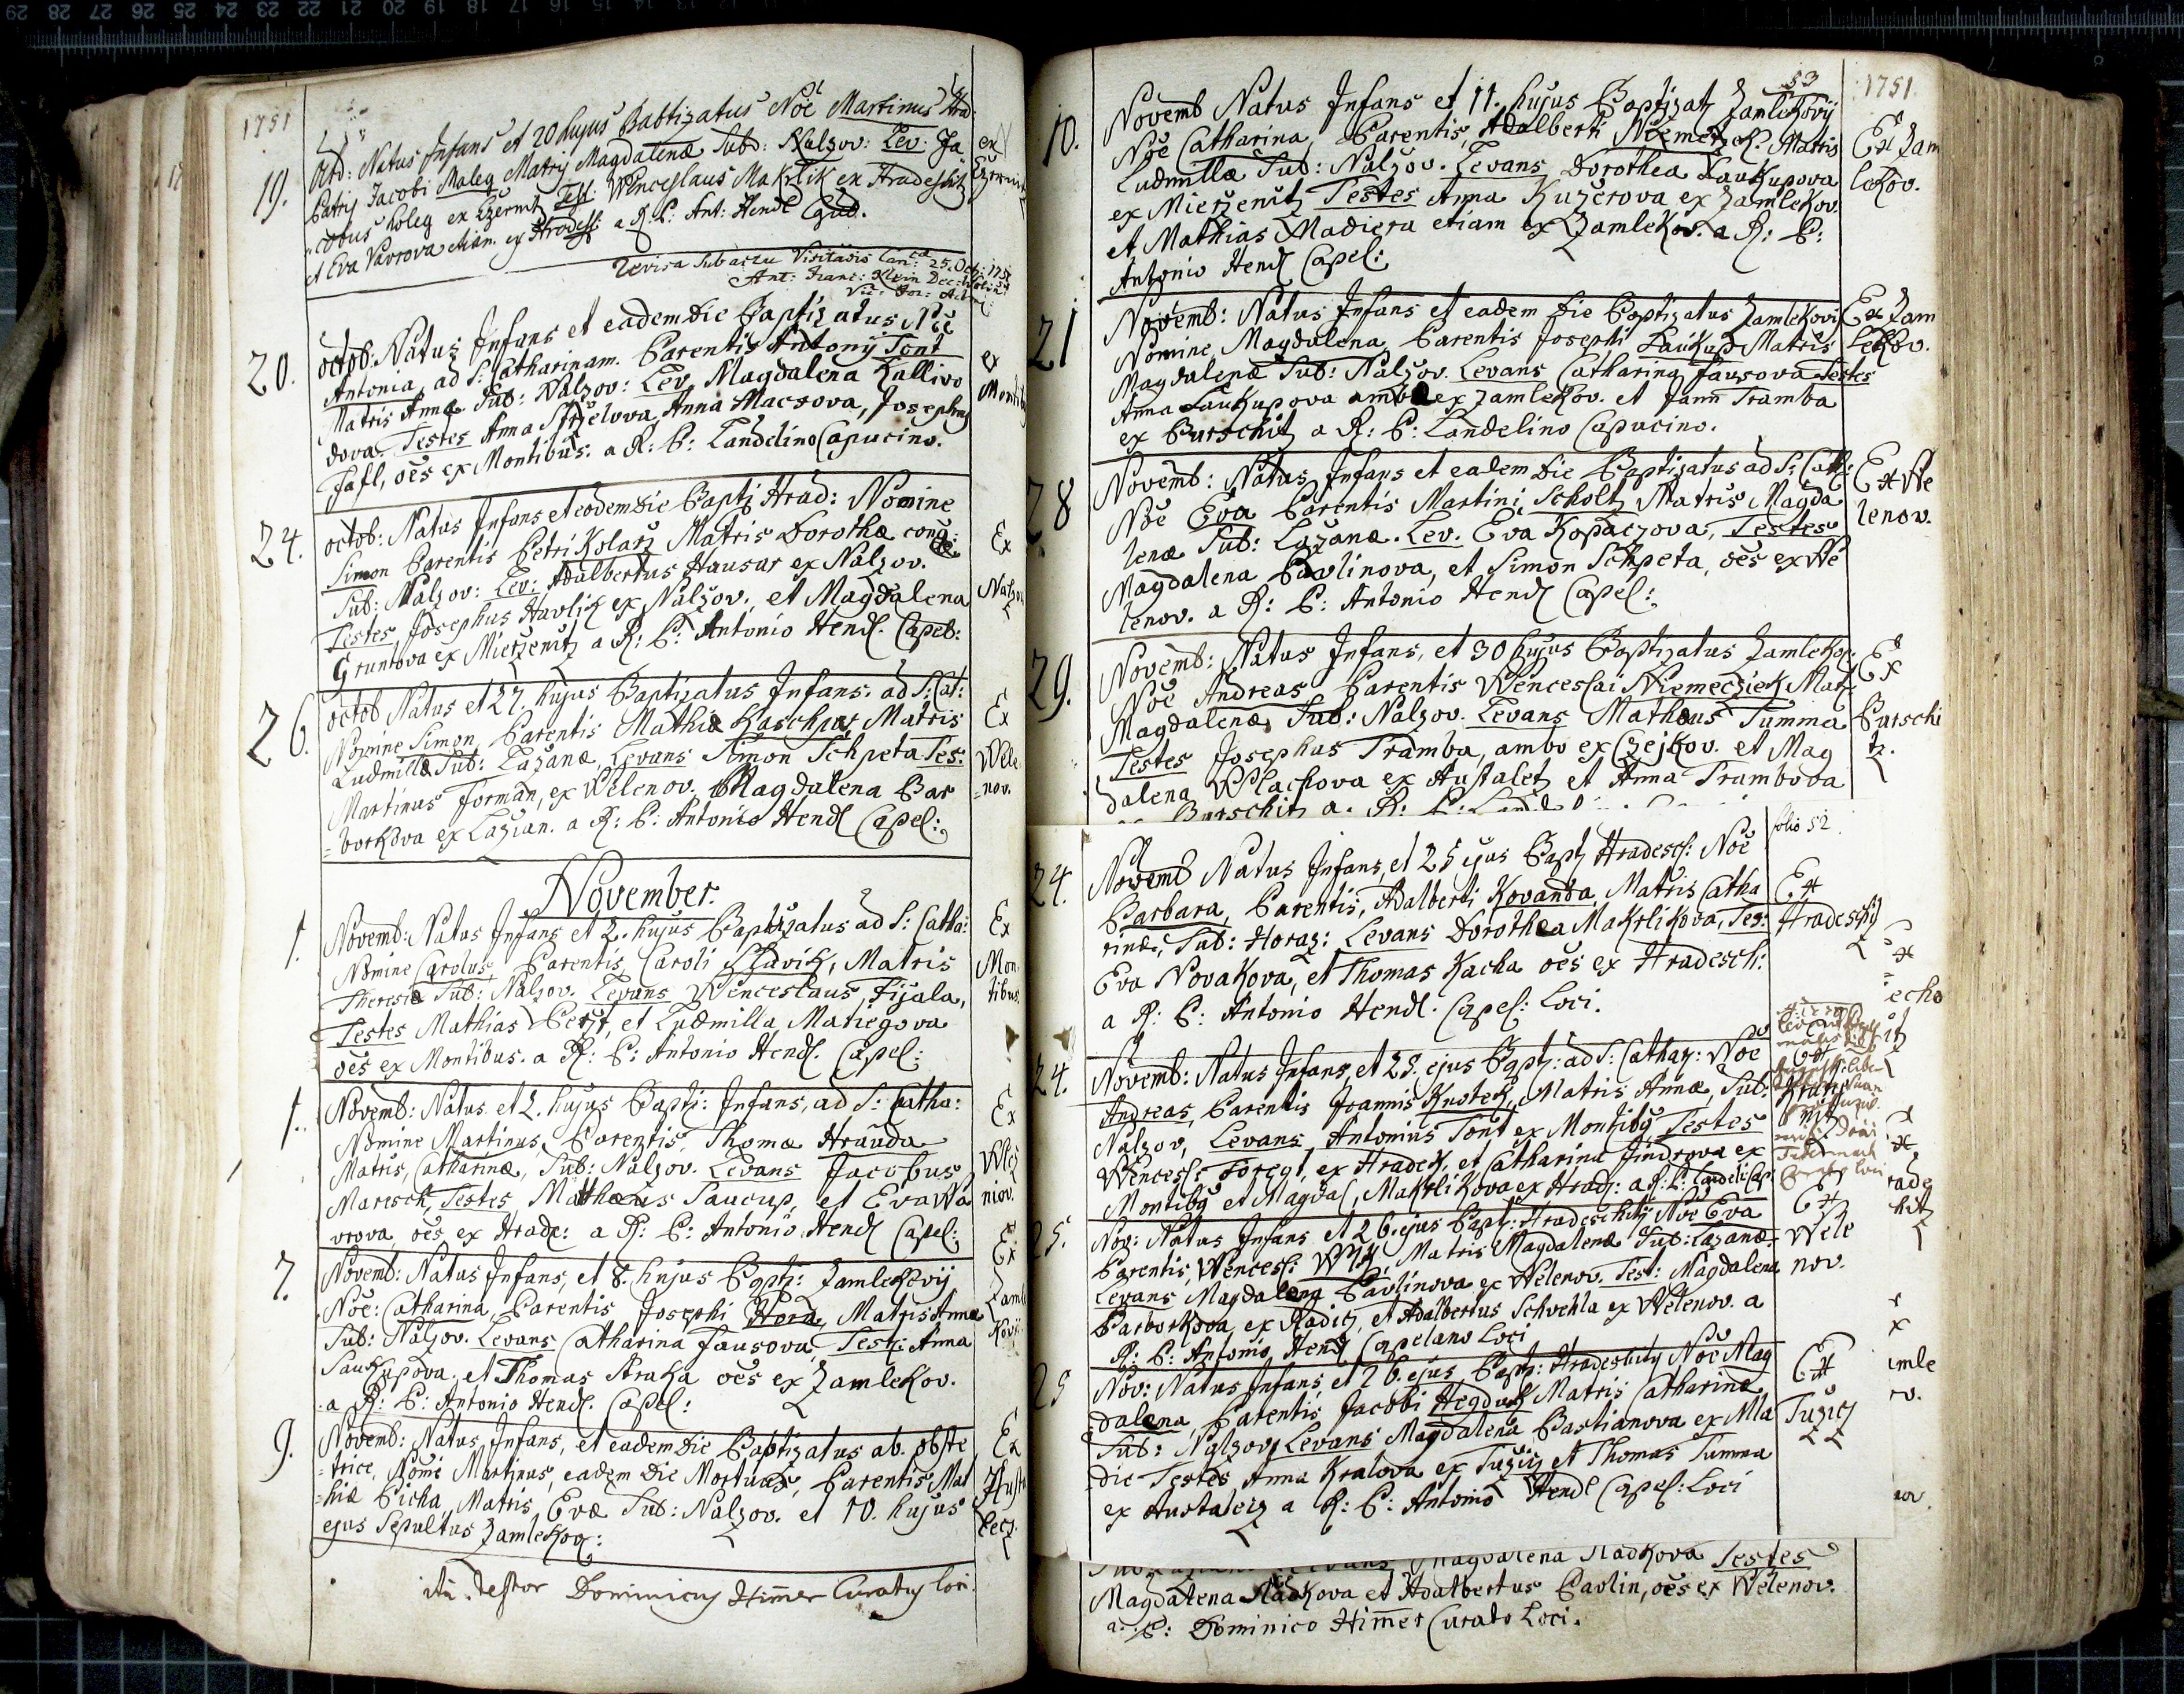 1751
19. Octob: Natus Infans et 20 hujus Babtizatus Noe Martinus
Patris Jacobi Maleg Matris Magdalenæ Sub: Nalzov: Lev: Ja
cobus ex Czernitz Test: Wenceslaus Makrlik ex Hradeschitz
et Eva Vavrova etiam ex Hradess: a R: P: Ant: Hendl
Revisa sub actu Visitatis Can: 25. Octb: 1751
Ant: Franc: Klein
20. octob: Natus Infans et eadem die Baptizatus Noe
Antonia, ad S: Catharinam. Parentis Antonij Tont
Matris Annæ Sub: Nalzov: Lev. Magdalena Kallivo
dova. Testes Anna Strzelova, Anna Maczova, Josephus
Tafl, oes ex Montibus. a R: P: Landelino Capucino.
ex
Monti
24. octob: Natus Infans et eodem die Bapti Hrad: Nomine
Simon Parentis Petri Kolarz Matris Dorothæ
Sub: Nalzov: Lev: Adalbertus Hausar ex Nalzov.
Testes Josephus Havlik ex Nalzov. et Magdalena
Gruntova ex Mierzenitz a R: P: Antonio Hendl. Capel:
Ex
Nalzov
26. octob Natus et 27. hujus Baptizatus Infans. ad S: Cat:
Nomine Simon Parentis Mathiæ Kaschpar Matris
Ludmillæ Sub: Lazanæ, Levans Simon Schpeta Tes:
Martinus Forman, ex Welenov. Magdalena Bar
=borkova ex Lazian. a R: P: Antonio Hendl Capel:
Ex
Wele
=nov.
November.
1. Novemb: Natus Infans et 2. hujus Baptizatus ad S: Catha:
Nomine Carolus, Parentis, Caroli Slavik, Matris
Theresiæ Sub: Nalzov. Levans Wenceslaus Fijala,
Testes Mathias et Ludmilla Matiegova
oes ex Montibus. a R: P: Antonio Hendl. Capel:
Ex
Mon
tibus
1. Novemb: Natus. et 2. hujus Bapti: Infans, ad S: Catha:
Nomine Martinus. Parentis, Thomæ Hrauda
Matris, Catharinæ, Sub: Nalzov. Levans Jacobus
Maresch, Testes, Mathæus Saucup, et Eva Wa
vrova oes ex Hrade: a R: P: Antonio Hendl Capel:
Ex
niov.
7. Novemb: Natus Infans, et 8. hujus Bapti: Zamlekovij
Noe: Catharina, Parentis Josephi Hora, Matris Annæ
Sub: Nalzov. Levans Catharina Fausova, Test: Anna
Saukupova, et Thomas Straka oes ex Zamlekov.
a R: P: Antonio Hendl. Capel:
Ex
Zaml
kovi
9. Novemb: Natus Infans, et eadem die Baptizatus ab. obste
=trice, Nomi Martinus, eadem die Mortuus, Parentis Mat
=hiæ Picha, Matris Evæ Sub: Nalzov. et 10. hujus
ejus Sepultus Zamlekov:
Ex
ita testor Dominicus Himer Curatus loci.
53
1751
10. Novemb Natus Infans et 11. hujus Baptizat Zamlekovij
Noe Catharina, Parentis, Adalberti Niemetzek. Matris
Ludmillæ Sub: Nalzov. Levans Dorothea Laukupova
ex Mierzenitz Testes Anna Kuzerova ex Zamlekov.
et Mathias Madiera etiam ex Zamlekov. a R: P:
Antonio Hendl Capel:
Ex Zam
lekov.
21 Novemb: Natus Infans et eadem die Baptizatus Zamlekovij
Nomine Magdalena Parentis Josephi Laukup Matris
Magdalenæ Sub: Nalzov. Levans Catharina Fausova Testes
Anna Laukupova ambo ex Zamlekov. et Jann Tramba
ex Burschitz a R: P: Landelino Capucino.
Ex Zam
lekov.
28 Novemb: Natus Infans et eadem die Baptizatus ad S: Cath:
Noe Eva Parentis Martini Scholtz Matris Magda
lenæ Sub: Lazanæ. Lev. Eva Kopaczova, Testes
Magdalena Pavlinova, et Simon Schpeta, oes ex We
lenov. a R: P: Antonio Hendl Capel:
Ex We
lenov.
29. Novemb: Natus Infans, et 30 hujus Baptizatus Zamlekov:
Noe Andreas Parentis Wenceslai Niemeczek Mat:
Magdalenæ Sub: Nalzov. Levans Mathæus Tumma
Testes Josephus Tramba, ambo ex Czejkov. et Mag
dalena Wlachova ex Hustaletz et Anna Trambova
Burschitz a. R: P:
Ex
Burschi
tz.
folio 52
24. Novemb Natus Infans, et 25 ejus Bapti Hradesch: Noe
Barbara, Parentis, Adalberti Kovanda Matris Catha
rinæ, Sub: Horaz: Levans Dorothea Makrlikova, Tes:
Eva Novakova, et Thomas Kacha oes ex Hradesch:
a R: P: Antonio Hendl. Capel: Loci.
Ex
Hradeschitz
24. Novemb: Natus Infans, et 25. ejus Bapti: ad S: Cathar: Noe
Andreas, Parentis Joannis Knotek, Matris Annæ, Sub:
Nalzov, Levans, Antonius Tont ex Montibus Testes
Wencesl: Foregt, ex Hradek, et Catharina Jindrova ex
Montibus et Magdal, Makrlikova ex Hradz: a R: P: Landeli Cap:
25. Nov: Natus Infans et 26. ejus Bapti: Hradeschitz Noe Eva
Parentis, Wencesl: Wlk, Matris Magdalenæ Sub: Lazanæ
Levans Magdalena Pavlinova ex Welenov. Test: Magdalena
Barborkova ex Radicz, et Adalbertus Schvehla ex Welenov. a
R: P: Antonio, Hendl Capelano Loci
Ex
Wele
nov.
25 Nov: Natus Infans et 26. ejus Bapti: Hradeshitz Noe Mag
dalena, Parentis Jacobi Hegduk Matris Catharinæ
Sub: Nalzov. Levans Magdalena Bastianova ex Mla
dic Testes, Anna Kralova ex Tuzicz et Thomas Tumma
ex Hustalecz a R: P: Antonio Hendl Capel: Loci
Ex
Tuzicz
Levans Magdalena Sladkova Testes
Magdalena Sladkova et Adalbertus Pavlin, oes ex Welenov.
a. P: Dominico Himer Curato Loci.